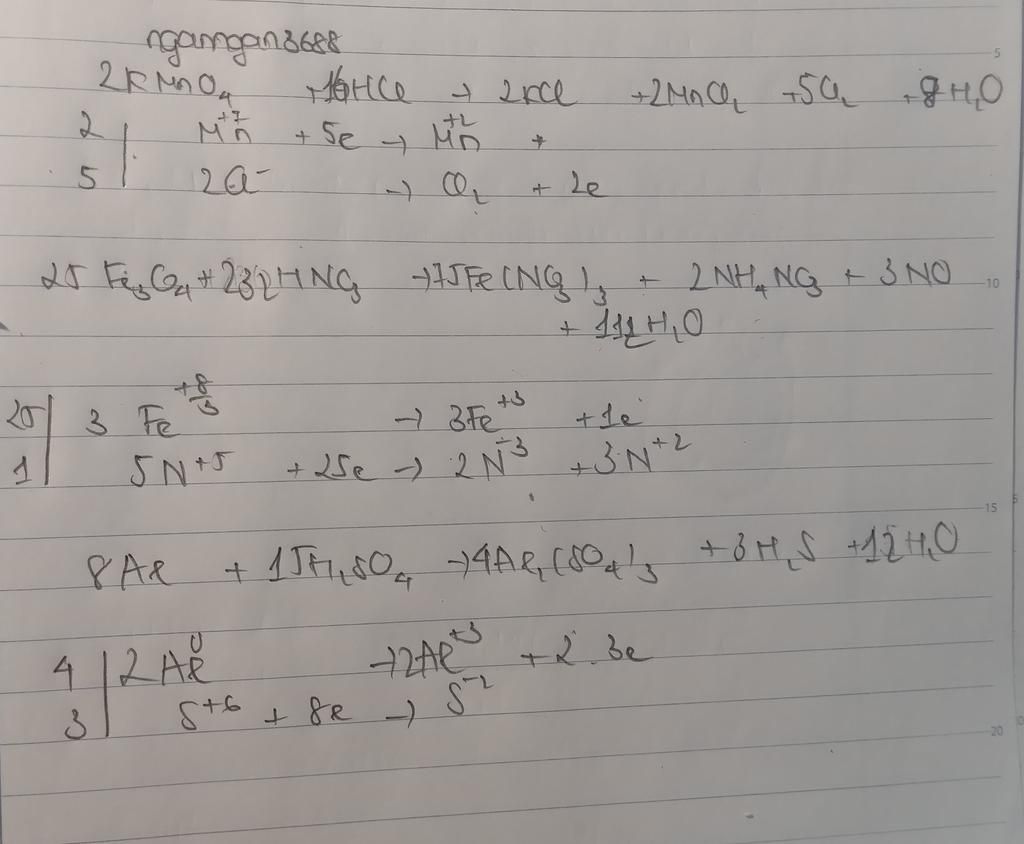 nganngan3688
2KMnO4 +16HCl → 2KCl +2MnCl2 +5Cl2 +8H2O
2 | Mn+7 + 5e → Mn+2 +
5 | 2Cl- → Cl2 + 2e
25 Fe3O4 + 232HNO3 → 75Fe(NO3)3 + 2NH4NO3 + 3NO
+ 112H2O
25 | 3 Fe+8/3 → 3Fe+3 +1e
1 | 5N+5 +25e → 2N-3 +3N+2
8Al + 15H2SO4 → 4Al2(SO4)3 +3H2S +12H2O
4 | 2Al0 → 2Al+3 + 2.3e
3 | S+6 + 8e → S-2
5
10
15
20